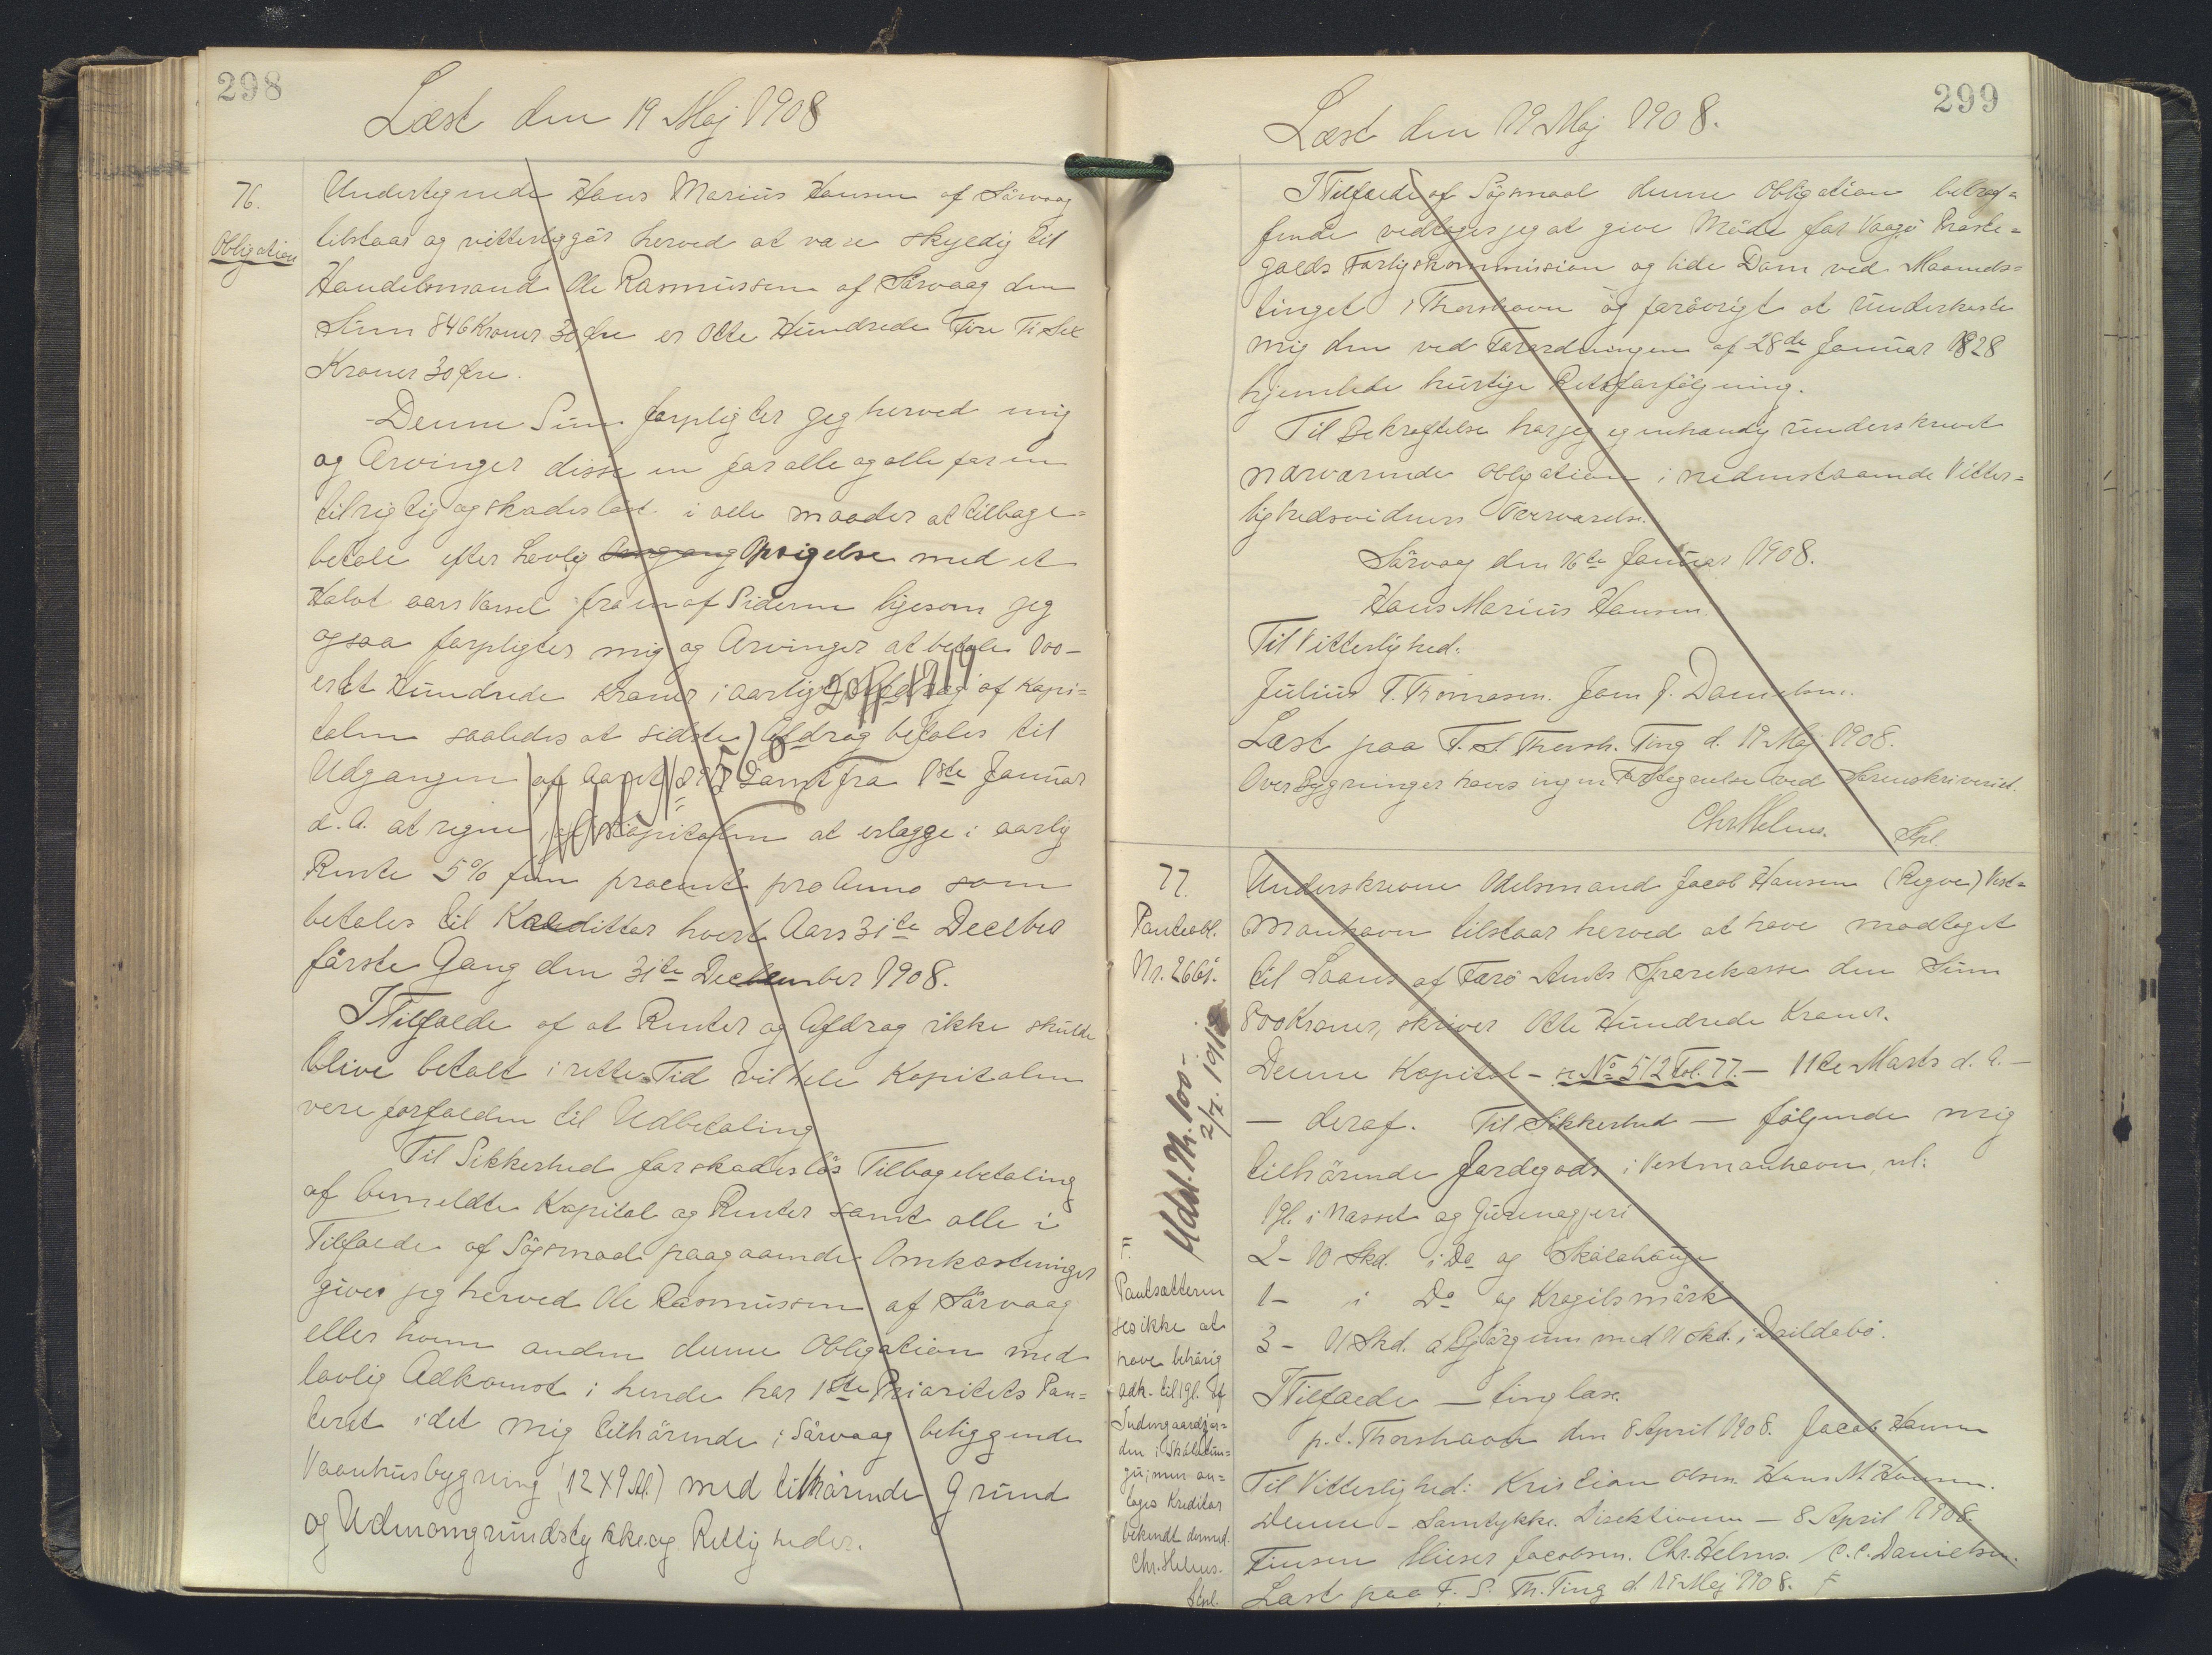 298
Læst den 19 Maj 1908
76.
Obligation
Undertegnede Hans Marius Hansen af Sörvaag
tilstaar og vitterliggör herved at være skyldig til
Handelsmand Ole Rasmussen af Sörvaag den
Sum 846 Kroner 30 Øre er Otte Hundrede Fire Ti Sex
Kroner 30 Øre.
Denne Sum forpligter jeg herved mig
og Arvinger disse en for alle og alle for en
til rigtig og skadeslöst i alle maader at tilbage=
betale efter Lovlig Opsigelse med et
Halvt aars Varsel fra en af Siderne ligesom jeg
ogsaa forpligter mig og Arvinger at betale 100-
er Et Hundrede Kroner i aarligt Afdrag af Kapi=
talen saaledes at sidste Afdrag betales til
Udgangen af Aaret Samt fra 1ste Januar
d. A. at regne af Kapitalen at erlægge i aarlig
Rente 5% fem procent pro Anno som
betales til Kreditter hvert Aars 31te Decbr
förste Gang den 31te December 1908.
I Tilfælde af at Renter og Afdrag ikke skulde
blive betalt i rette Tid vil hele Kapitalen
være forfalden til Udbetaling
Til Sikkerhed for skadeslös Tilbagebetaling
af bemeldte Kapital og Renter samt alle i
Tilfælde af Sögsmaal paagaaende Omkostninger
giver jeg herved Ole Rasmussen af Sörvaag
eller hvem anden denne Obligation med
lovlig Adkomst i hende har 1ste Prioritets Pan=
teret i det mig tilhörende i Sörvaag beliggende
Vaanhusbygning (12 X 9 Al.) med tilhörende Grund
og Udenomgrundstykke og Rettigheder.
299
Læst den 19 Maj 1908.
I Tilfælde af Sögsmaal denne Obligation betræf=
fende vedtager jeg at give Möde for Vaagö Præste=
gælds Forligskommission og lide Dom ved Maaneds=
tinget i Thorshavn og forövrigt at underkaste
mig den ved Forordningen af 28de Januar 1828
hjemlede hurtige Retsforfölgning.
Til Bekræftelse har jeg egenhændig underskrevet
nærværende Obligation i nedenstaaende Vitter=
lighedsvidners Overværelse.
Sörvaag den 16te Januar 1908.
Hans Marius Hansen.
Til Vitterlighed:
Julius T. Thomasen. Joen J. Danielsen.
Læst paa F. S. Thorsh. Ting d. 19 Maj 1908.
Over Bygninger haves ingen Fortegnelse ved Sorenskriveriet.
Chr Helms. Spl.
77.
Panteobl.
Nr. 2665.
Underskrevne Odelsmand Jacob Hansen (Regve) Vest=
manhavn tilstaar herved at have modtaget
til Laans af Færö Amts Sparekasse den Sum
800 Kroner, skriver Otte Hundrede Kroner.
Denne Kapital - se No 512 Fol. 77. - 11te Marts d. A. -
- deraf. Til Sikkerhed - fölgende mig
tilhörende Jordegods i Vestmanhavn, nl:
1 gl. i Nasset og
2 - 10 Skd. i Do og Skálahauge
1 - i Do og Kragilsmörk
3 - 11 Skd. á Björgum med 11 Skd. i
I Tilfælde - tinglæs.
p. t. Thorshavn den 8 April 1908. Jacob Hansen
Til Vitterlighed: Kristian Olsen. Hans M. Hansen.
Denne - Samtykke. Direktionen - 8 April 1908
Finsen Elieser Jacobsen. Chr. Helms. C. C. Danielsen.
Læst paa F. S. Th. Ting d. 19 Maj 1908. F
Udsl. Th.
2/7. 1918
F.
Pantsætteren
ses ikke at
have behörig
Adk. til 1 gl. af
Indengaardsjor=
den i
men an=
tages Kreditor
bekendt dermed.
Chr. Helms.
Spl.